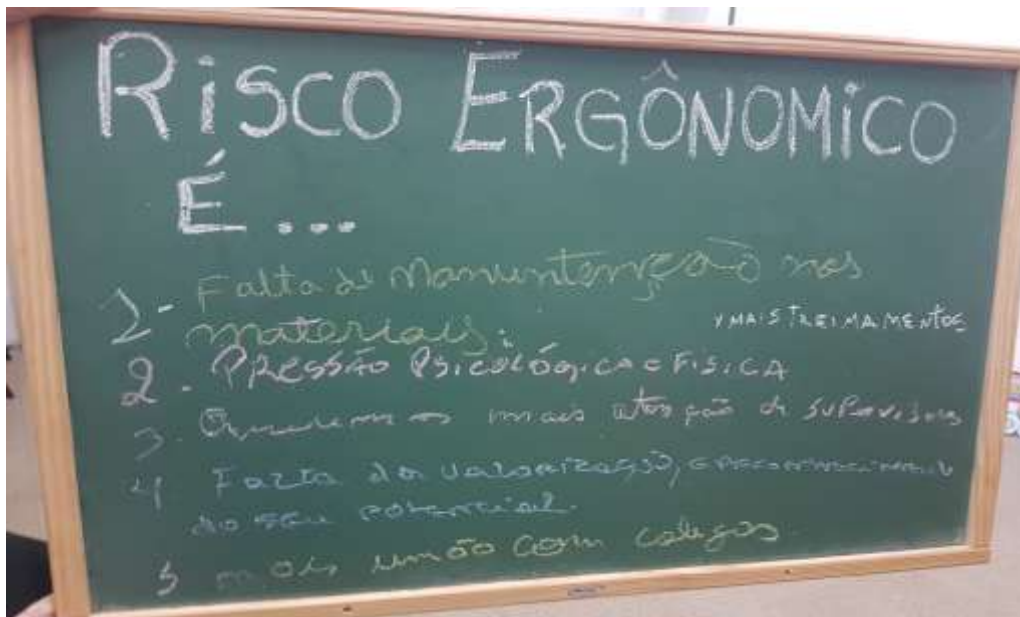 RiSCO ERGÔNOMiCO
É...
1- Falta de Manuntenção nos
materiais.
Y MAIS TREINAMENTOS
2. PRESSÃO PSicológica e FISICA
3. mais atenção de SUPERVISORES
4 Falta da valorização, e reconhecimento
do seu potencial.
5 mais união com colegas